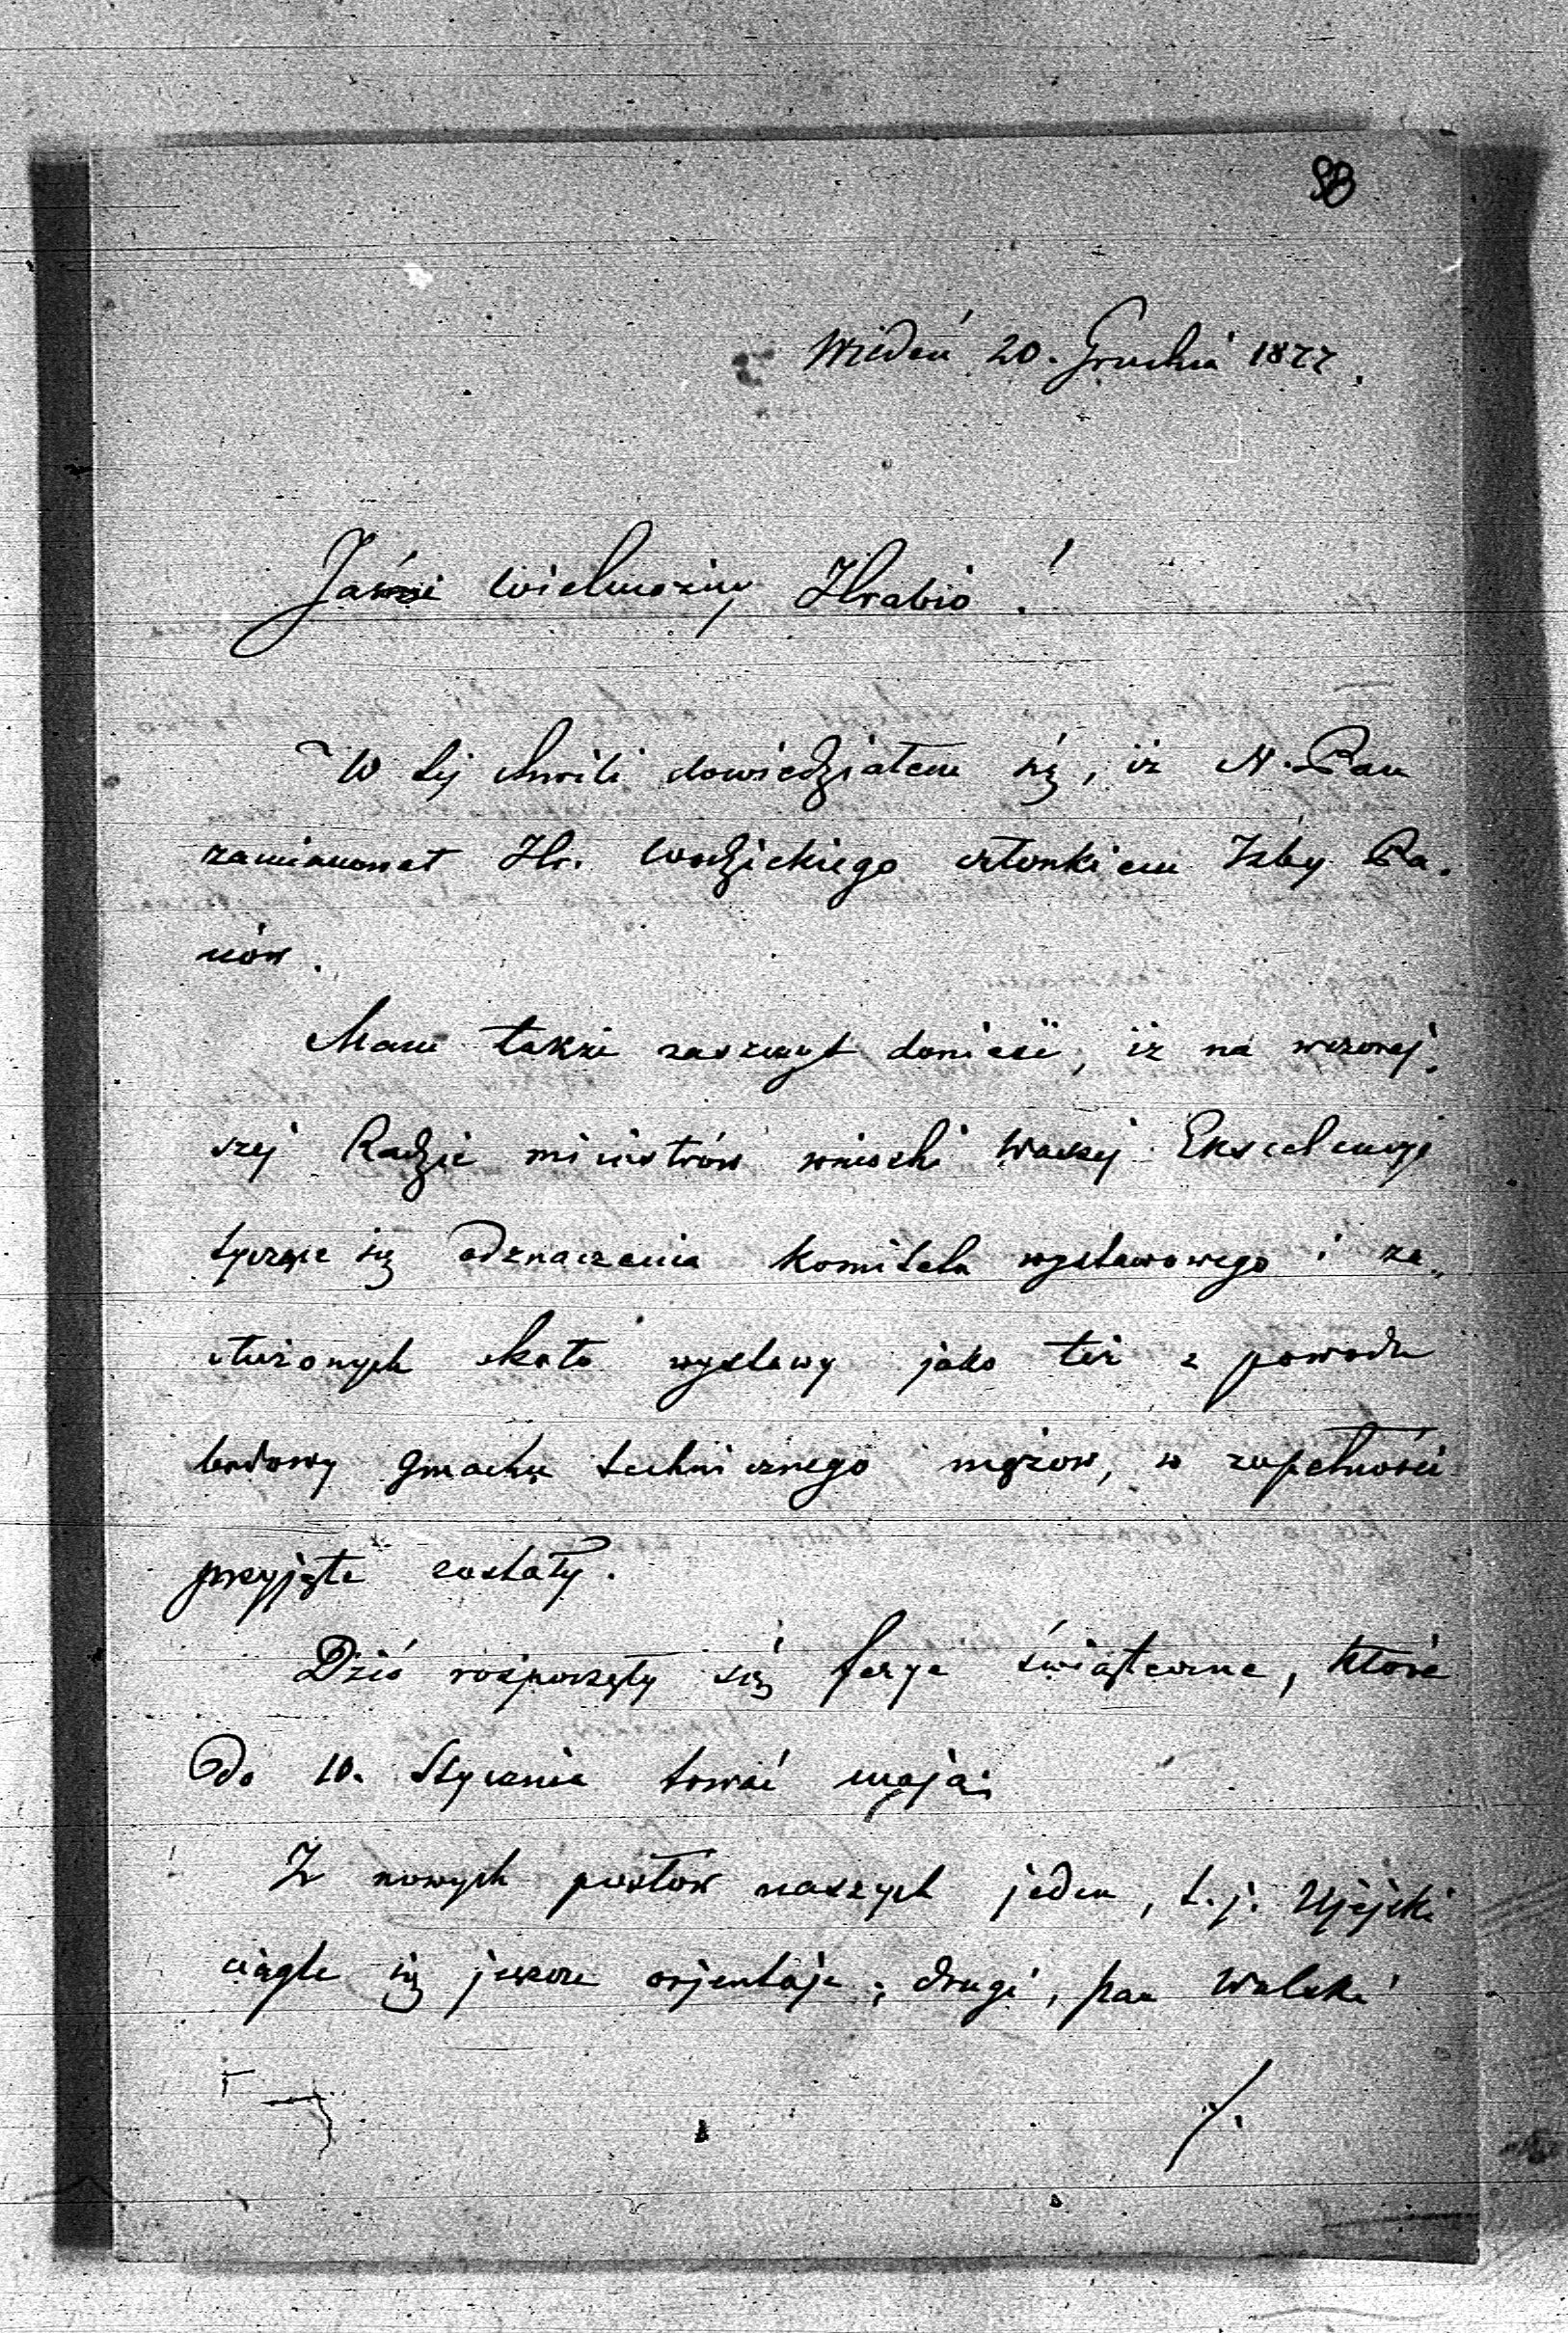 98
Wiedeń 20. Grudnia 1877.
Jaśnie Wielmożny Hrabio!
W tej chwili dowiedziałem się, iż N. Pan
zamianował Hr. Wodzickiego członkiem Izby Pa-
nów.
Mam także zaszczyt donieść, iż na wczoraj-
szej Radzie ministrów wnioski Waszej Ekscelencyi
tyczące się odznaczenia komitetu wystawowego i za-
służonych około wystawy jako też z powodu
budowy gmachu technicznego mężów, w zupełności
przyjęte zostały.
Dziś rozpoczęły się ferye świąteczne, które
do 10. Stycznia trwać mają.
Z nowych posłów naszych jeden, t. j. Ujejski
ciągle się jeszcze orjentuje; drugi, pan Wolski
./.